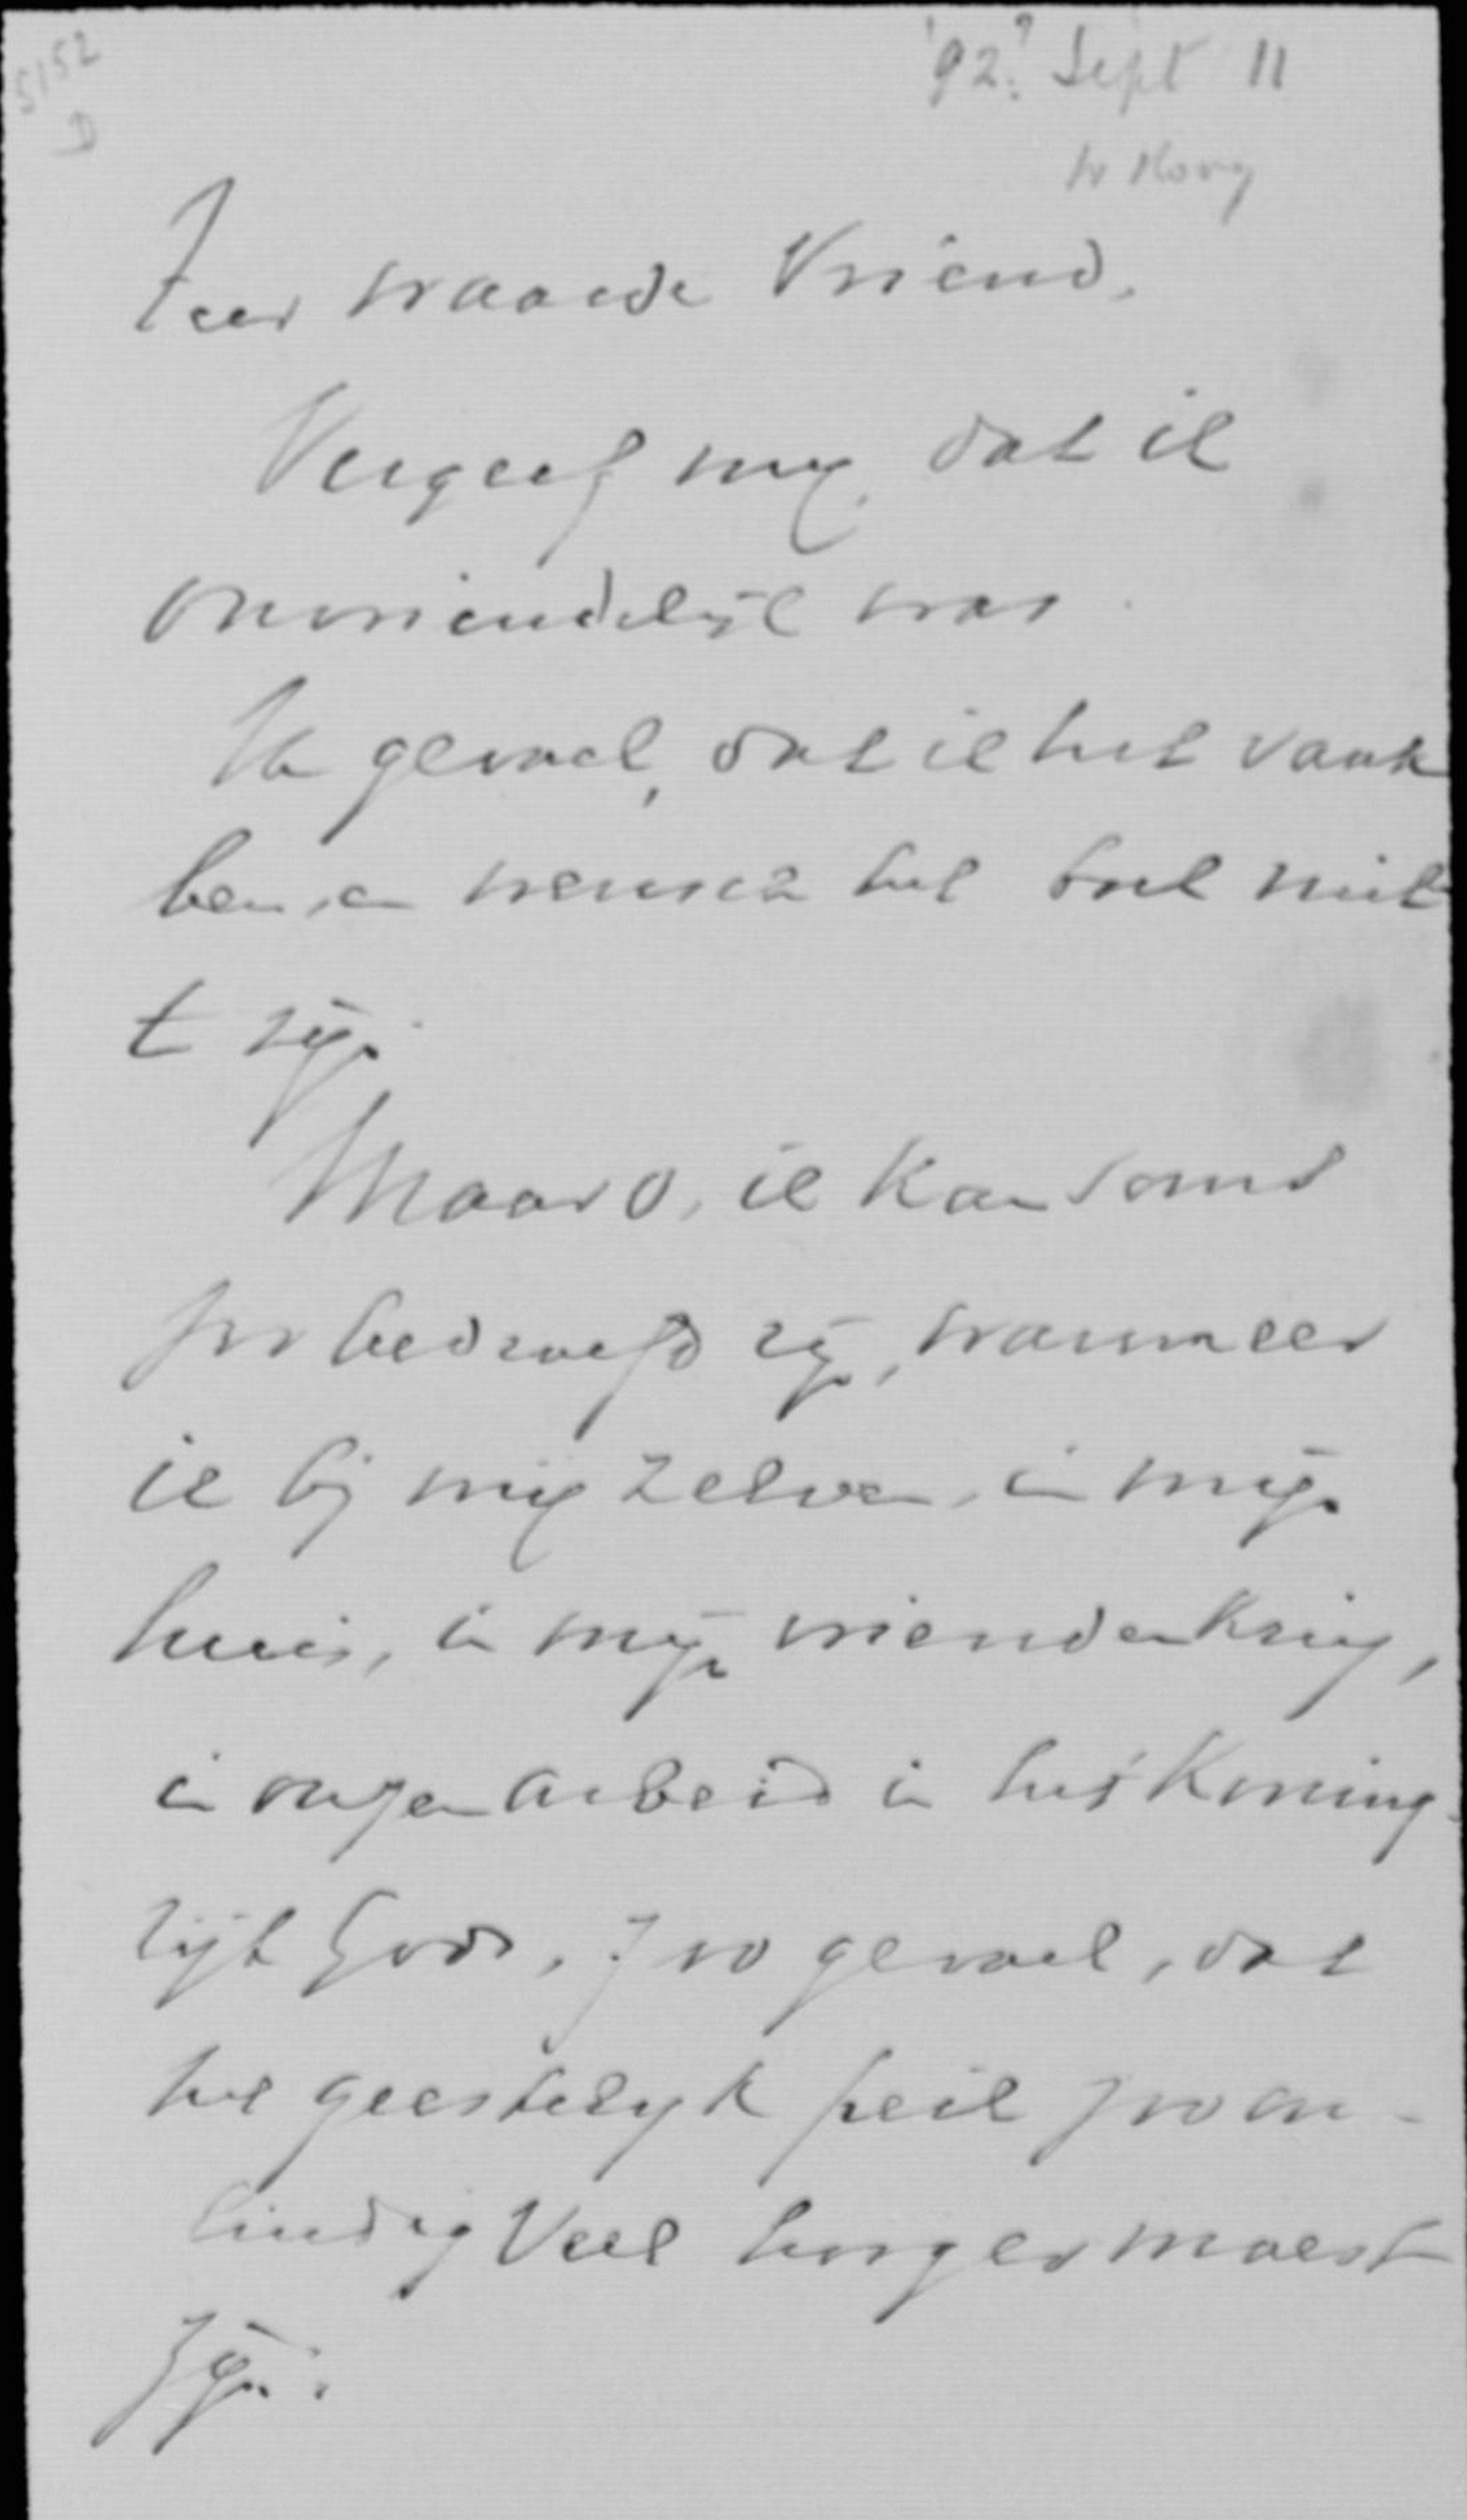 5152
D
'92? Sept 11
Zeer waarde Vriend,
Vergeef mij, dat ik
onvriendelijk was.
Ik gevoel, dat ik het vaak
ben, en wensch het toch niet
te zijn.
Maar o, ik kan soms
zoo bedroefd zijn, wanneer
ik bij mij zelven, in mijn
huis, in mijn vriendenkring,
in onzen arbeid in het Koning-
rijk Gods, zoo gevoel, dat
het geestelijk peil zoo on-
eindig Veel hooger moest
zijn.